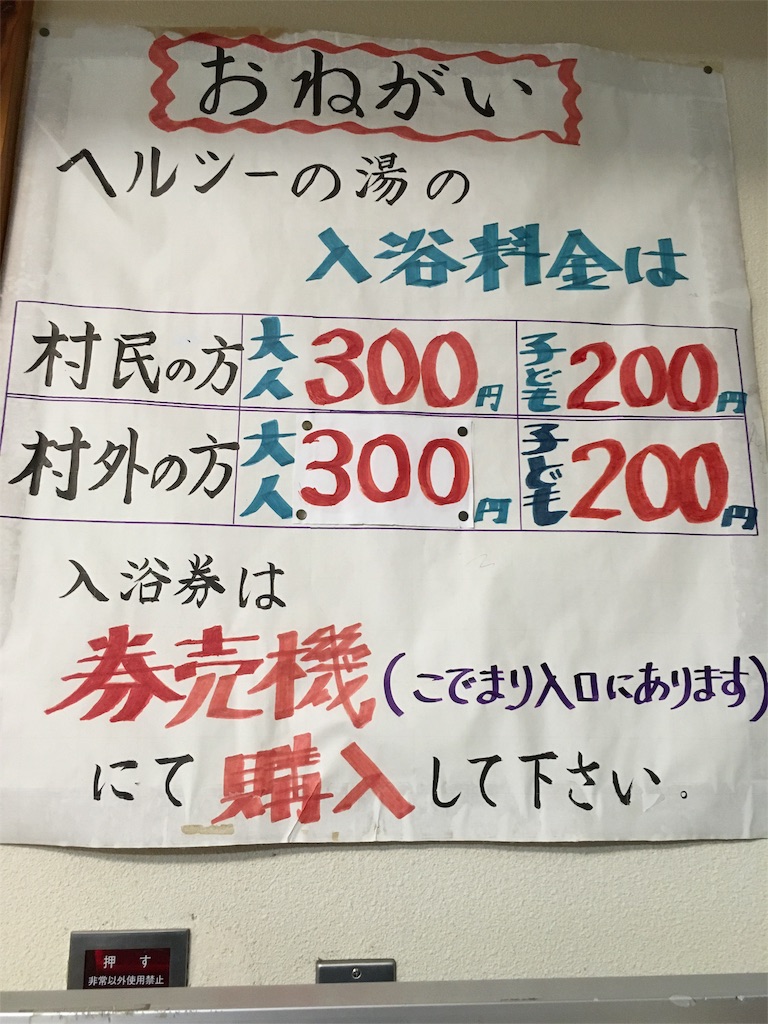 おねがい
ヘルツーの湯の
入浴料金は
村民の方 大人300円 子ども200円
村外の方 大人300円 子ども200円
入浴券は
券売機(こでまり入口にあります)
にて購入して下さい。
押す
非常以外使用禁止